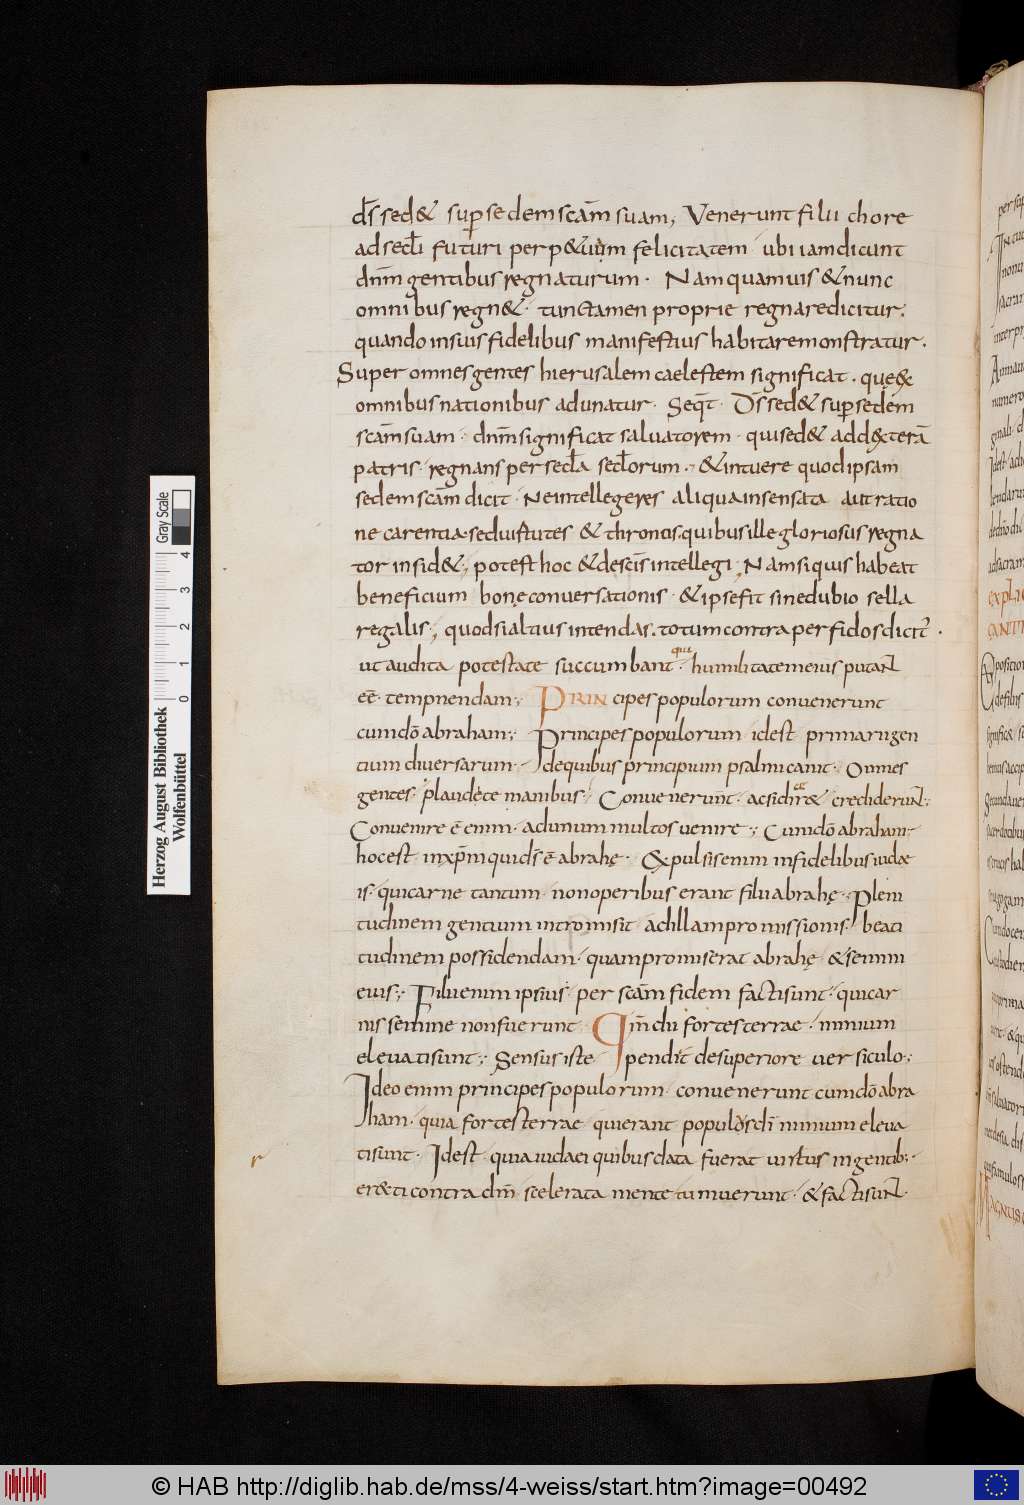 ds̄ sed& sup̱ sedem scām suam, Venerunt filii chore
ad secl̄i futuri perp&uum felicitatem · ubi iam dicunt
dn̄m gentibus regnaturum · Nam quamuis & nunc
omnibus regn& · tunc tamen proprie regnare dicitur.
quando in suis fidelibus manifestius habitare monstratur.
Super omnes gentes hierusalem caelestem significat . que ex
omnibus nationibus adunatur · Seqt̄ · Ds̄ sed& sup̱ sedem
scām suam · dn̄m significat saluatorem · qui sed& ad dexterā
patris · regnans per secl̄a secl̄orum · & intuere quod ipsam
sedem scām dicit · Ne intellegeres aliqua insensata aut ratio
ne carentia · sed uirtutes & thronos · quibus ille gloriosus regna
tor insid& ; potest hoc & de scīs intellegi ; Nam si quis habeat
beneficium bonę conuersationis · & ipse fit sine dubio sella
regalis ; quod si altius intendas . totum contra perfidos dicit̄ .
ut audita potestate succumbant · qui humilitatem eius putar̄
eē · tempnendam ; PRINcipes populorum conuenerunt
cum dō abraham ; Principes populorum · id est primarii gen
tium diuersarum · De quibus principium psalmi canit · Omnes
gentes · plaudite manibus · Conuenerunt · ac si dicer& crediderun̄t ;
Conuenire ē enim · ad unum multos uenire ; Cum dō abraham ·
hoc est · in xp̄m qui ds̄ ē abrahę · Expulsis enim infidelibus iudae
is · qui carne tantum · non operibus erant filii abrahę · Pleni
tudinem gentium intromisit · ad illam promissionis · beati
tudinem possidendam · quam promiserat abrahę · & semini
eius ; Filii enim ipsius · per scām fidem facti sunt · qui car
nis semine non fuerunt · Qm̄ dii fortes terrae · nimium
eleuati sunt ; Sensus iste pendit de superiore uersiculo ;
Ideo enim principes populorum · conuenerunt cum dō abra
ham · quia fortes terrae · qui erant populus dī nimium eleua
ti sunt · Id est · quia iudaei quibus data fuerat uirtus in gentib; ·
er&ti contra dm̄ · scelerata mente tumuerunt · & facti sun̄t ·
r
Herzog August Bibliothek
Wolfenbüttel
0 1 2 3 4
Gray Scale
© HAB http://diglib.hab.de/mss/4-weiss/start.htm?image=00492